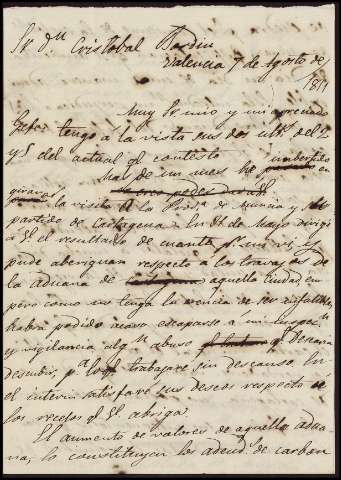 Sr. Dn. Cristobal Bordiu
Valencia 7 de Agosto de
1841
Muy Sr. mio y mi apreciado
Gefe: tengo a la vista sus dos ults. del 2
y 5 del actual q. contesto
Mas de un mes he en
girar la visita a la Prova. de Murcia y
partido de Cartagena. En 31 de Mayo dirigí
a V. el resultado de cuanto pr. mi vi
pude averiguar respecto a los
la aduana de aquella ciudad
pero como no tengo la ciencia de ser infalible
habrá podido acaso escaparse a mi inspecn.
y vigilancia algn. abuso q. deseara
descubrir, pa. lo q. trabajaré sin descanso. En
el interin satisfaré sus deseos respecto de
los recelos q. V. abriga.
El aumento de valores de aquella adua
na, lo constituyen los adeuds. de carbon